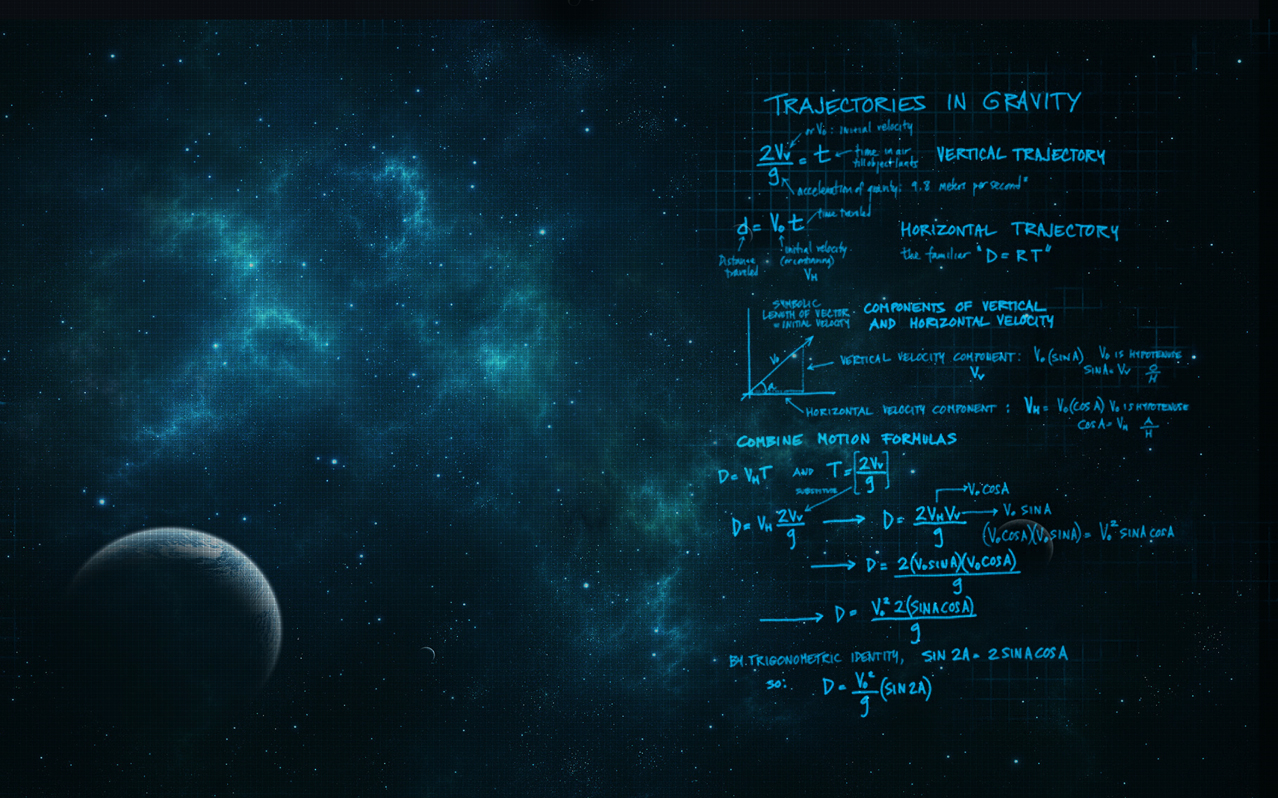 TRAJECTORIES IN GRAVITY
or Vo: initial velocity
2Vv/g = t
time in air
till object lands
VERTICAL TRAJECTORY
acceleration of gravity: 9.8 meters per second²
d = Vo t
time traveled
HORIZONTAL TRAJECTORY
the familiar "D=RT"
Distance
traveled
initial velocity
VH
SYMBOLIC
LENGTH OF VECTOR
= INITIAL VELOCITY
COMPONENTS OF VERTICAL
AND HORIZONTAL VELOCITY
Vo
A
VERTICAL VELOCITY COMPONENT: Vo(SINA) Vo IS HYPOTENUSE
Vv
SINA= Vv O/H
HORIZONTAL VELOCITY COMPONENT : VH= Vo(COS A) Vo IS HYPOTENUSE
COSA= VH A/H
COMBINE MOTION FORMULAS
D= VHT AND T= [2Vv/g]
SUBSTITUTE
D= VH 2Vv/g → D= 2VHVv/g
→ Vo COSA
→ Vo SINA
(VoCOSA)(VoSINA)= Vo² SINA COSA
→ D= 2(VoSINA)(VoCOSA)/g
→ D= Vo² 2(SINA COSA)/g
BY TRIGONOMETRIC IDENTITY, SIN 2A= 2 SINA COSA
SO: D= Vo²/g (SIN2A)